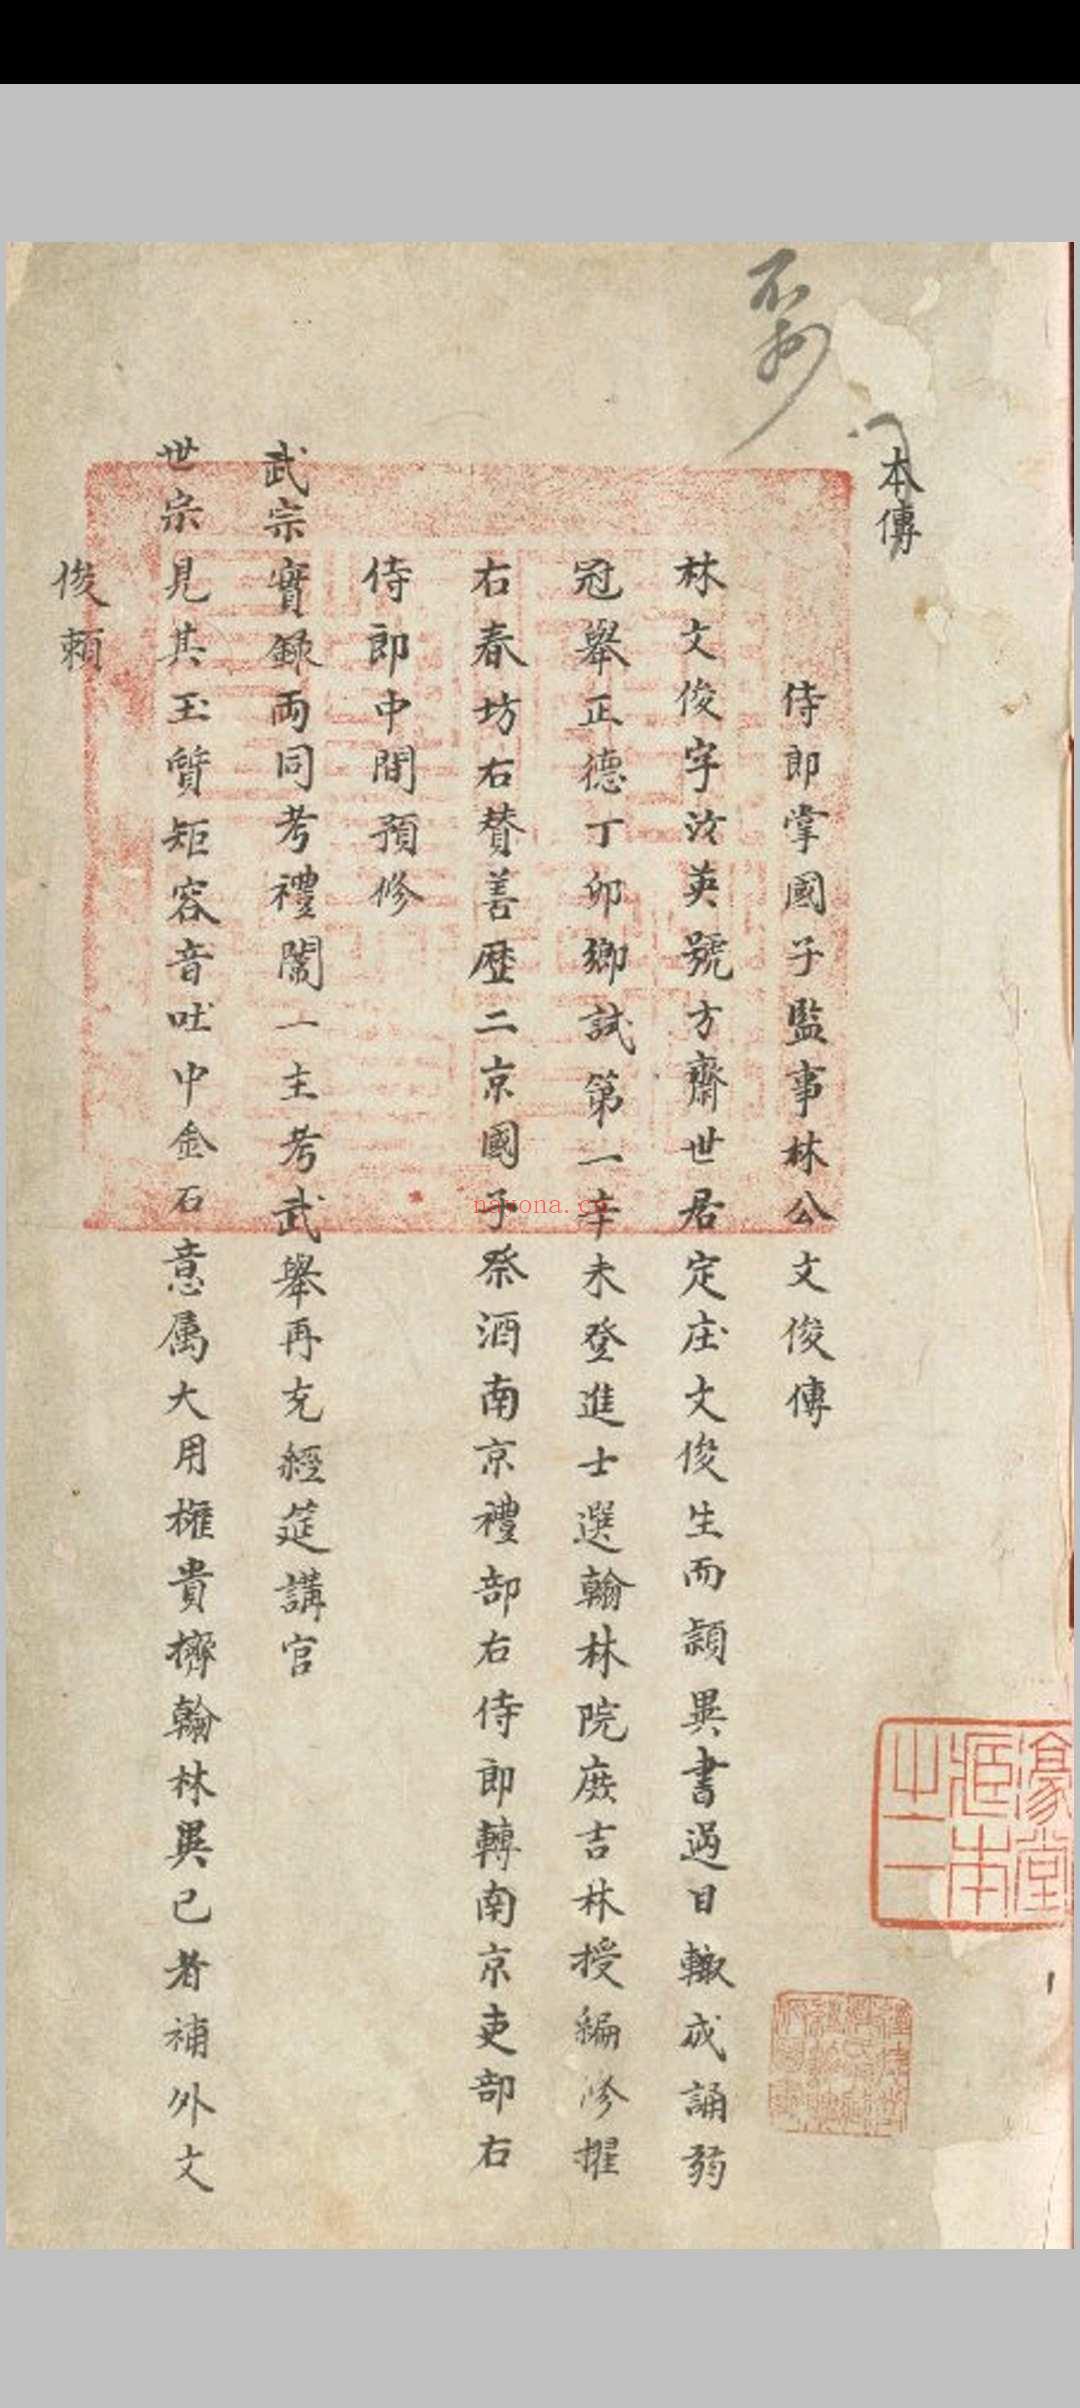 本傳
侍郎掌國子監事林公文俊傳
林文俊字汝英號方齋世居定庄文俊生而頴異書過目輙成誦弱
冠舉正德丁卯鄉試第一辛未登進士選翰林院庶吉林授編修擢
右春坊右賛善歴二京國子祭酒南京禮部右侍郎轉南京吏部右
侍郎中間預修
武宗實録両同考禮闈一主考武舉再充經筵講官
世宗見其玉質矩容音吐中金石意属大用權貴擠翰林異己者補外文
俊賴
不
濠堂
藏本
之一
navona.cn